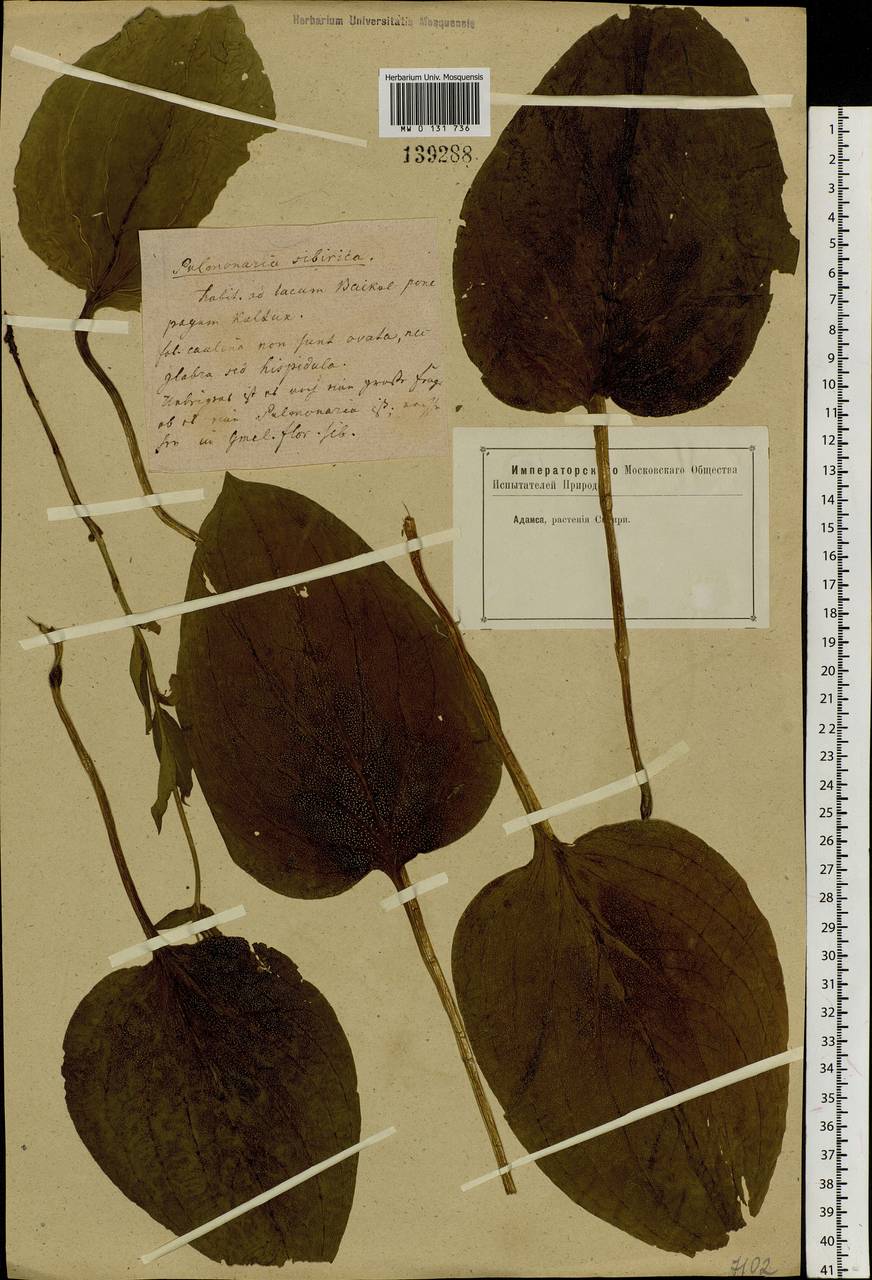 Herbarium Universitatis Mosquensis
Herbarium Univ. Mosquensis
MW 0 131 736
139288
Pulmonaria sibirica.
habit. ad lacum Baikal pone
pagum Kultuk.
fol. caulina non sunt ovata, nec
glabra sed hispidula.
ist es noch eine große Frage
ob es eine Pulmonaria ist,
in Gmel. flor. sib.
Императорского Московскаго Общества
Испытателей Природы
Адамса, растенія Сибири.
7102
1
2
3
4
5
6
7
8
9
10
11
12
13
14
15
16
17
18
19
20
21
22
23
24
25
26
27
28
29
30
31
32
33
34
35
36
37
38
39
40
41